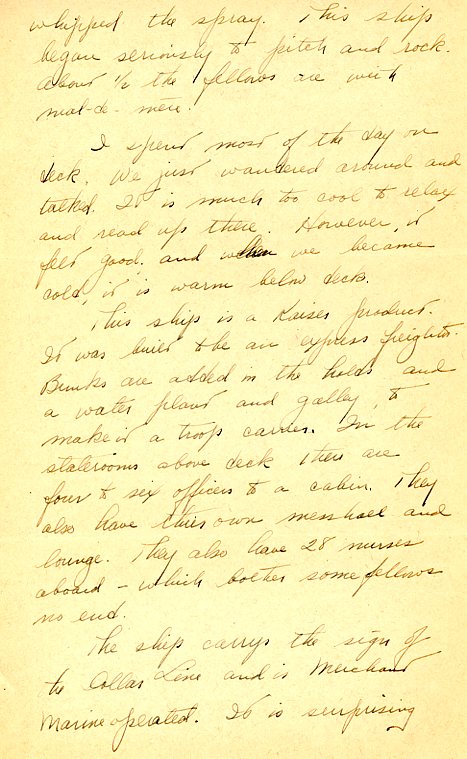 whipped the spray. This ship
began seriously to pitch and rock.
About 1/2 the fellows are with
mal-de-mere.
I spent most of the day on
deck. We just wandered around and
talked. It is much too cool to relax
and read up there. However, it
felt good. and when we became
cold, it is warm below deck.
This ship is a Kaiser product.
It was built to be an express freighter.
Bunks are added in the holds and
a water plant and galley, to
make it a troop carrier. In the
staterooms above deck there are
four to six officers to a cabin. They
also have their own messhall and
lounge. They also have 28 nurses
aboard - which bother some fellows
no end.
The ship carrys the sign of
the Line and is Merchant
Marine operated. It is surprising